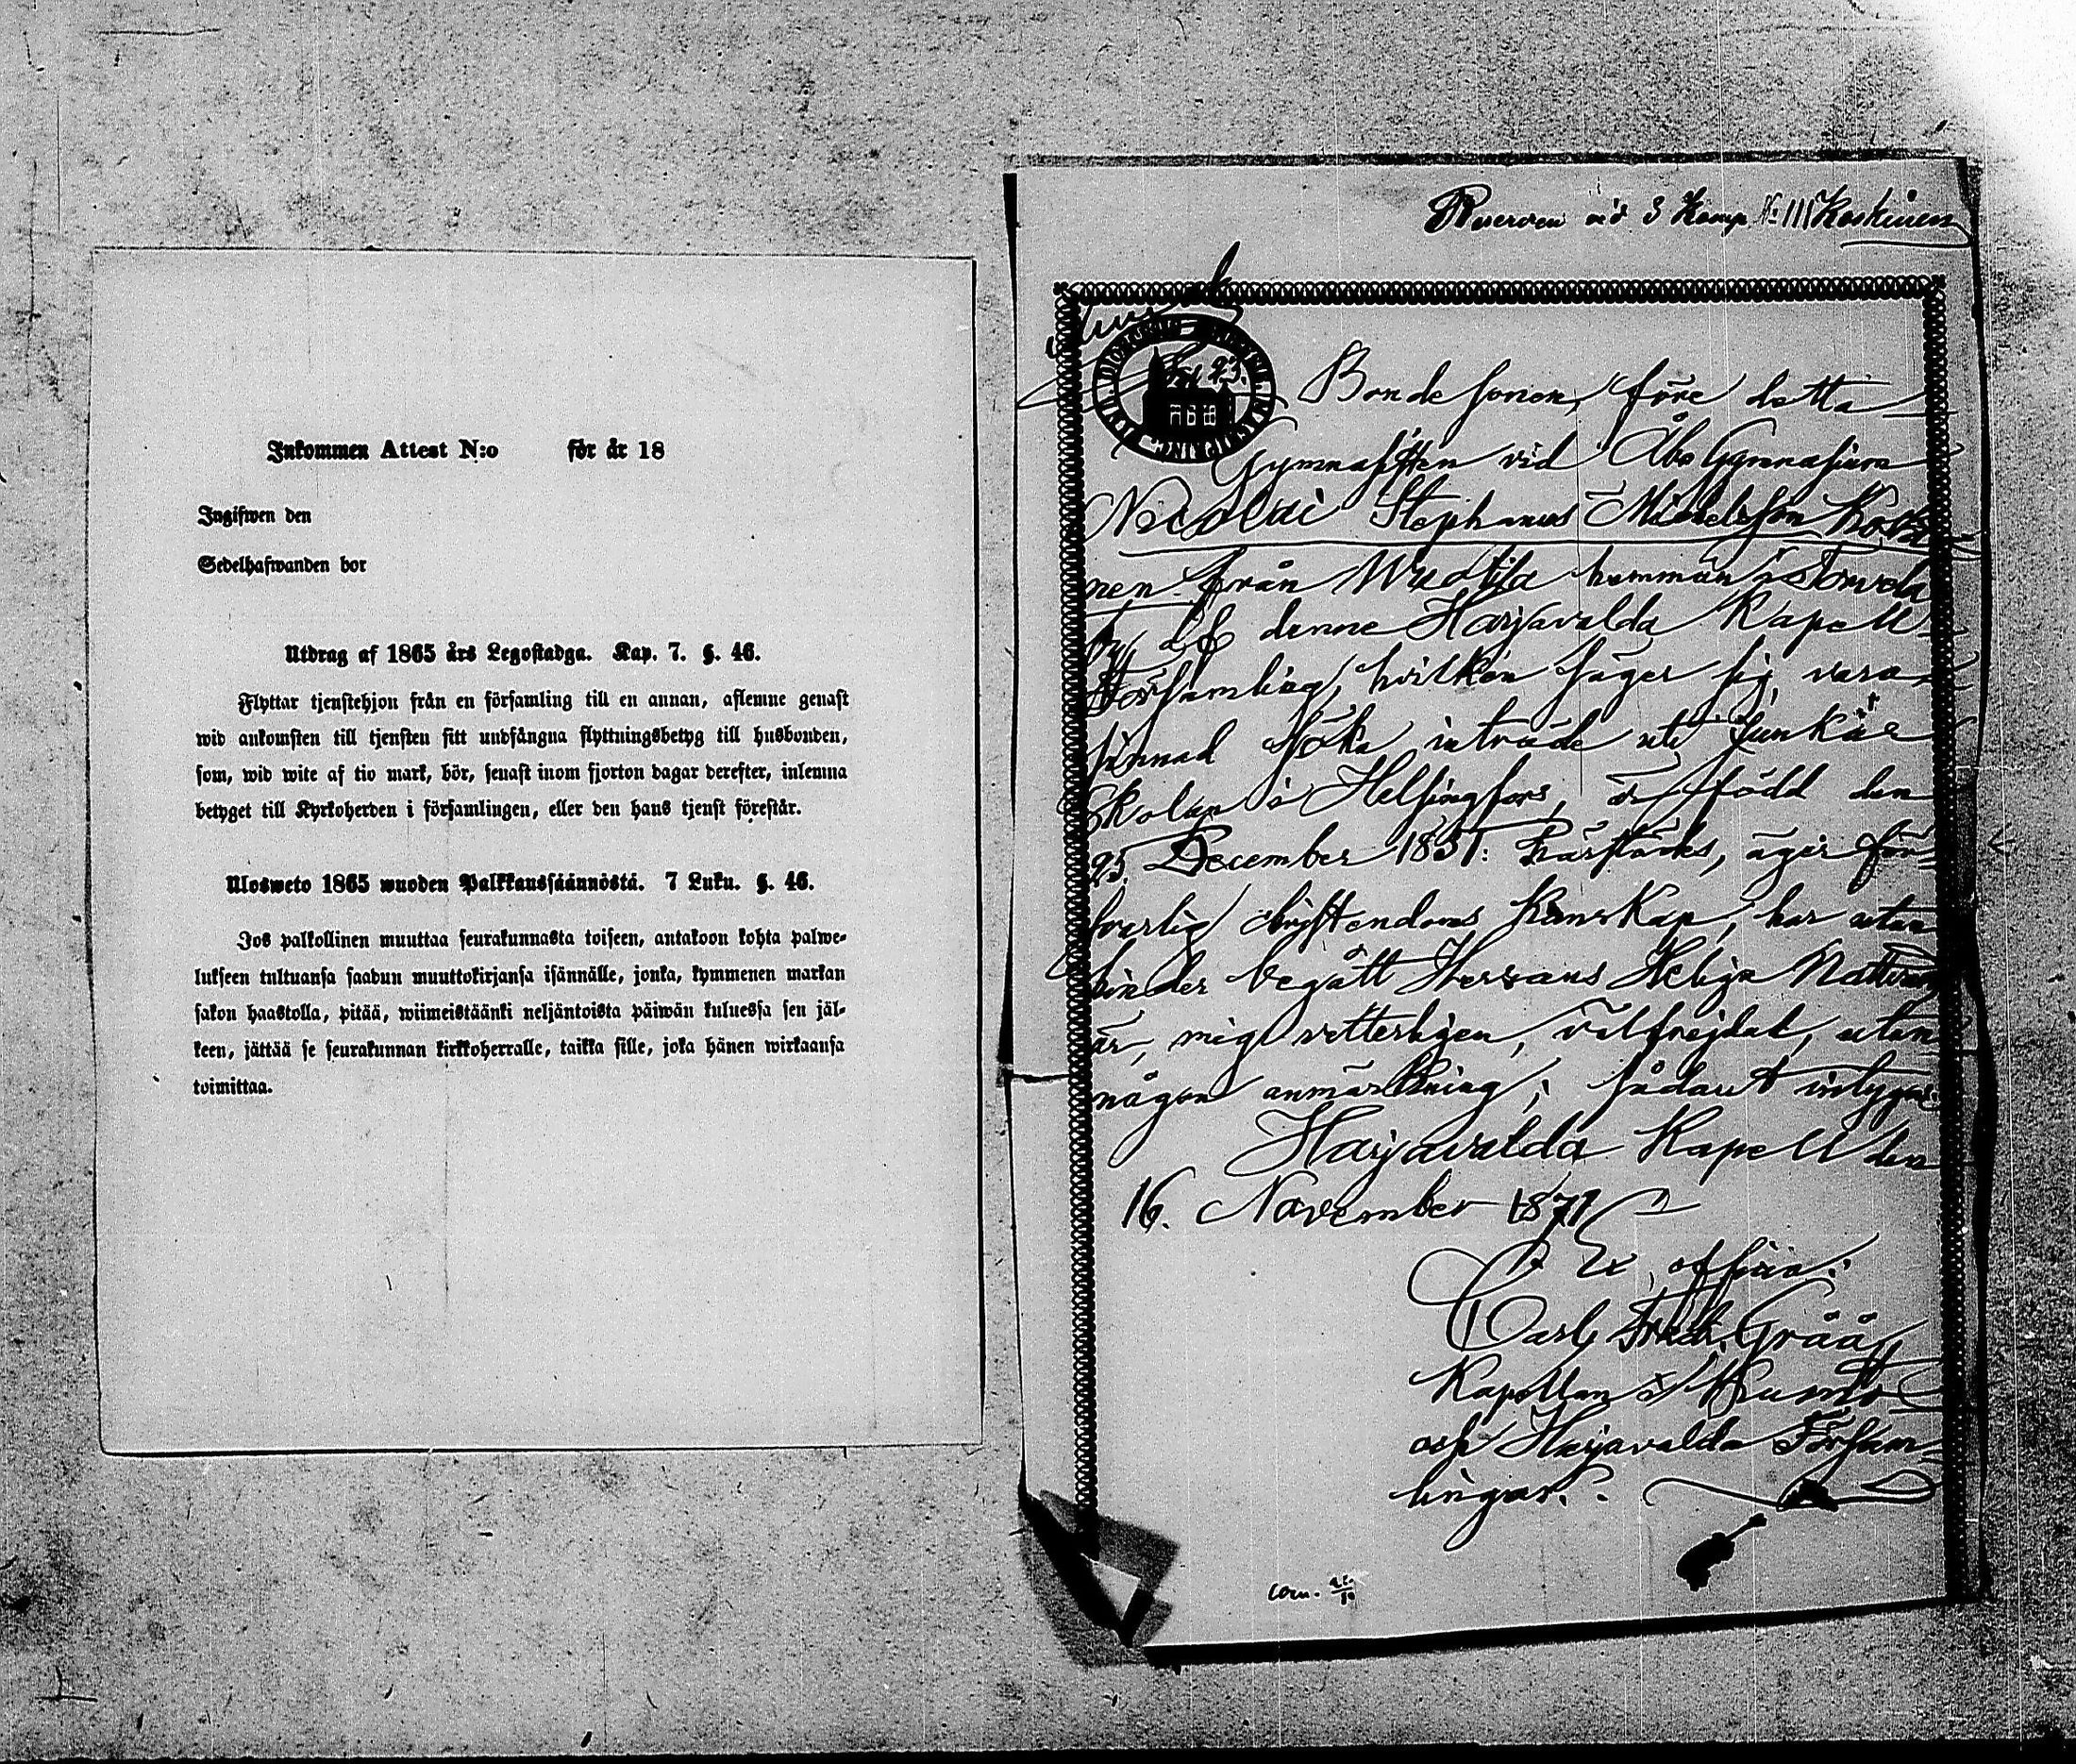 Inkommen Attest N:o för år 18
Ingifwen den
Sedelhafwanden bor
Utdrag af 1865 års Legostadga. Kap. 7. §. 46.
Flyttar tjenstehjon från en församling till en annan, aflemne genast
wid ankomsten till tjensten sitt undfångna flyttningsbetyg till husbonden,
som, wid wite af tio mark, bör, senast inom fjorton dagar derefter, inlemna
betyget till Kyrkoherden i församlingen, eller den hans tjenst förestår.
Ulosweto 1865 wuoden Palkkaussäännöstä. 7 Luku. §. 46.
Jos palkollinen muuttaa seurakunnasta toiseen, antakoon kohta palwe-
lukseen tultuansa saadun muuttokirjansa isännälle, jonka, kymmenen markan
sakon haastolla, pitää, wiimeistäänki neljäntoista päiwän kuluessa sen jäl-
keen, jättää se seurakunnan kirkkoherralle, taikka sille, joka hänen wirkaansa
toimittaa.
vid 3 Komp. No 111 Koskinen
Bondesonen, före detta
Gymnasisten vid Åbo Gymnasium
Nicolai Stephanus Michelsson Koski-
nen från hemman i Torvela
by af denne Harjavalda Kapell
Församling, hvilken säger sig vara
sinnad söka inträde uti Junkar
Skolan i Helsingfors, är född den
25 December 1851 härstädes, äger för-
svarlig christendoms kunskap, har utan
hinder begått Herrans Heliga Nattvard
är, mig vetterligen, välfrejdad, utan
någon anmärkning; sådant intygas.
Harjavalda Kapell den
16. November 1871
Ex officio:
Carl Fredr. Gråå
Kapellan i Kumo
och Harjavalda Försam-
lingar.
com.